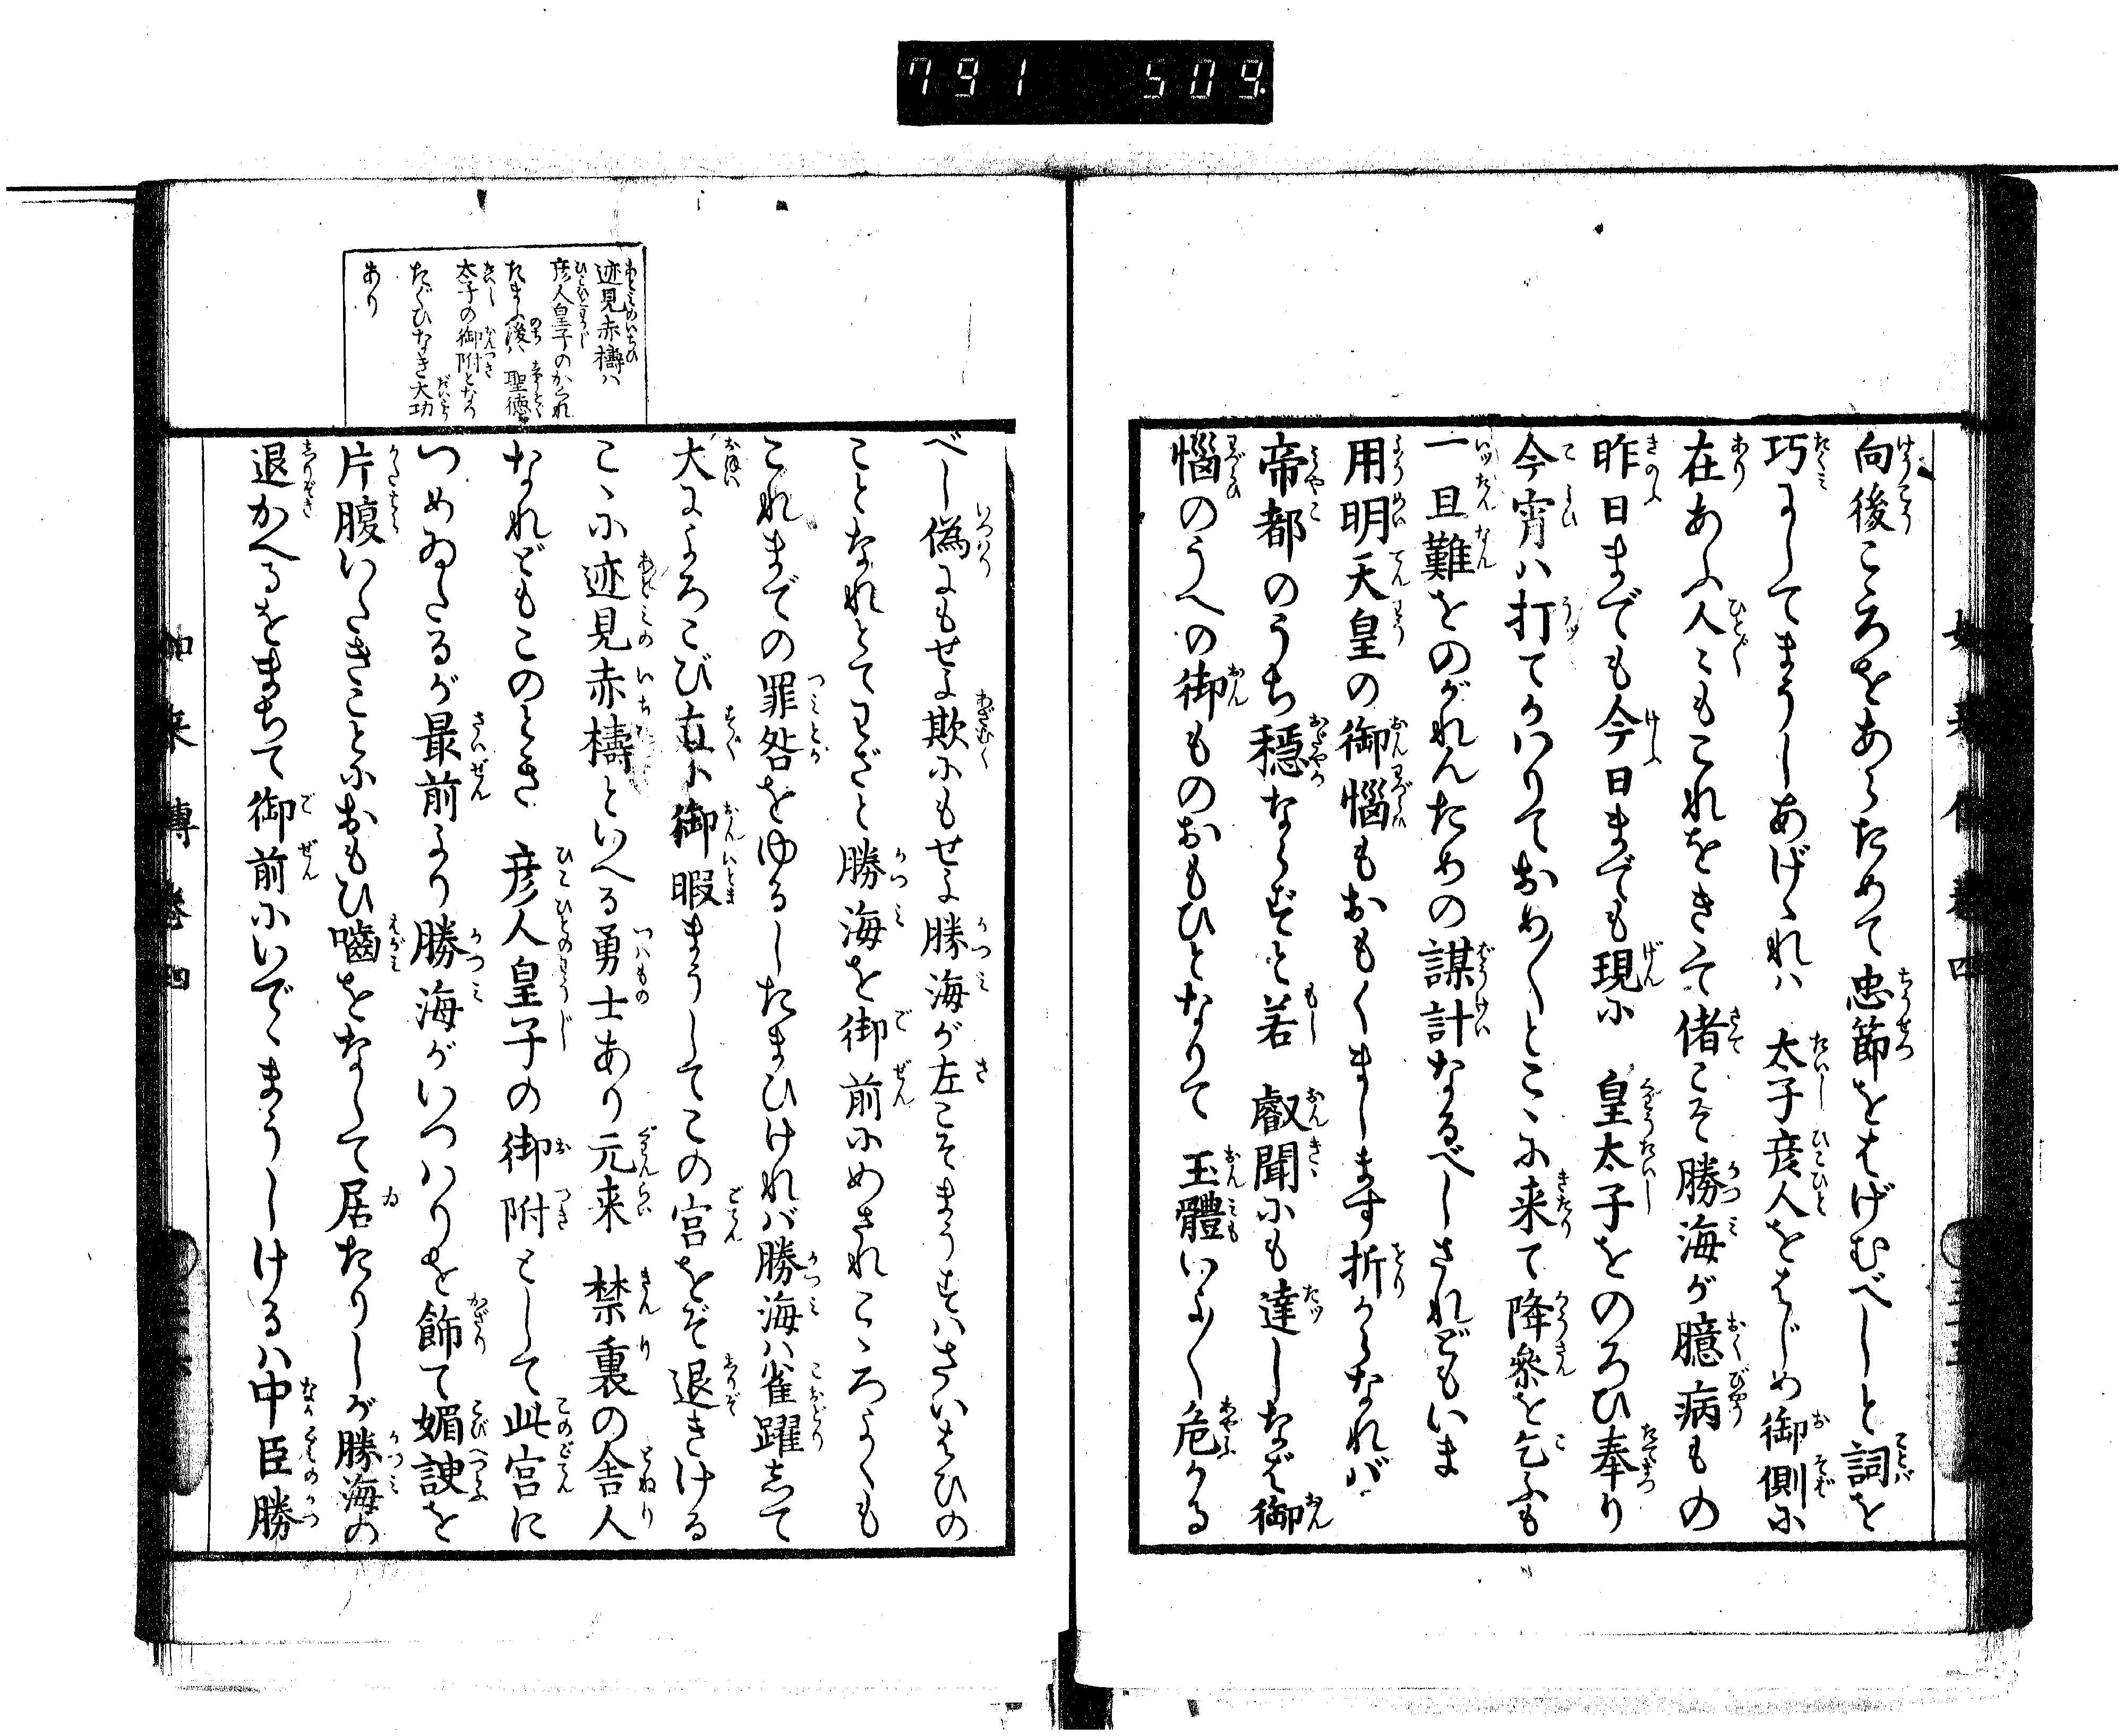 791 509.
向後こゝろをあらためて忠節をはげむべしと詞を
巧にしてまうしあげゝれハ 太子彦人をはじめ御側に
在あふ人〻もこれをきゝて偖こそ勝海が臆病もの
昨日までも今日までも現に 皇太子をのろひ奉り
今宵ハ打てかハりておめ〳〵とこゝに来て降参を乞ふも
一旦難をのがれんための謀計なるべしされどもいま
用明天皇の御惱もおもくまします折からなれバ
帝都のうち穏ならずと若 叡聞にも達しなバ御
惱のうへの御ものおもひとなりて 玉體いよ〳〵危かる
べし偽にもせよ欺にもせよ勝海が左こそまうすハさいはひの
ことなれとてわざと勝海を御前にめされこゝろよくも
これまでの罪咎をゆるしたまひけれバ勝海ハ雀躍して
大によろこび直に御暇まうしてこの宮をぞ退きける
こゝに迹見赤檮といへる勇士あり元来 禁裏の舎人
なれどもこのとき 彦人皇子の御附として此宮に
つめゐたるが最前より勝海がいつハりを飾て媚諛を
片腹いたきことにおもひ嚙をなして居たりしが勝海の
退かへるをまちて御前にいでゝまうしけるハ中臣勝
迹見赤檮ハ
彦人皇子のかくれ
たまふ後ハ 聖徳
太子の御附となり
たぐひなき大功
あり
如来傳卷四